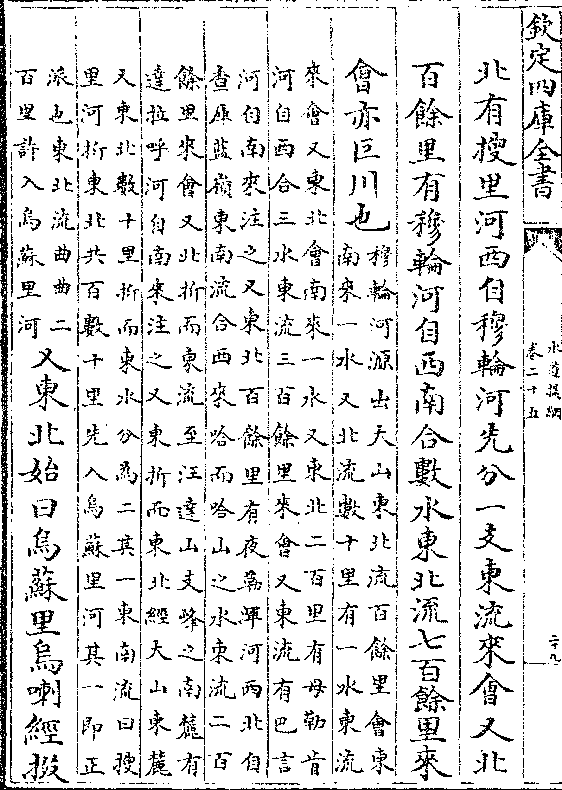 欽定四庫全書
水道提綱
卷二十五
二十九
北有搜里河西自穆輪河先分一支東流來會又北
百餘里有穆輪河自西南合數水東北流七百餘里來
會亦巨川也
穆輪河源出大山東北流百餘里會東
南來一水又北流數十里有一水東流
來會又東北會南來一水又東北二百里有母勒肯
河自西合三水東流三百餘里來會又東流有巴言
河自南來注之又東北百餘里有夜爲渾河西北自
查庫藍嶺東南流合西來哈而哈山之水東流二百
餘里來會又北折而東流至汪達山支峰之南麓有
達拉呼河自南來注之又東折而東北經大山東麓
又東北數十里折而東水分為二其一東南流曰搜
里河折東北共百數十里先入烏蘇里河其一即正
派也東北流曲曲二
百里許入烏蘇里河
又東北始曰烏蘇里烏喇經揆